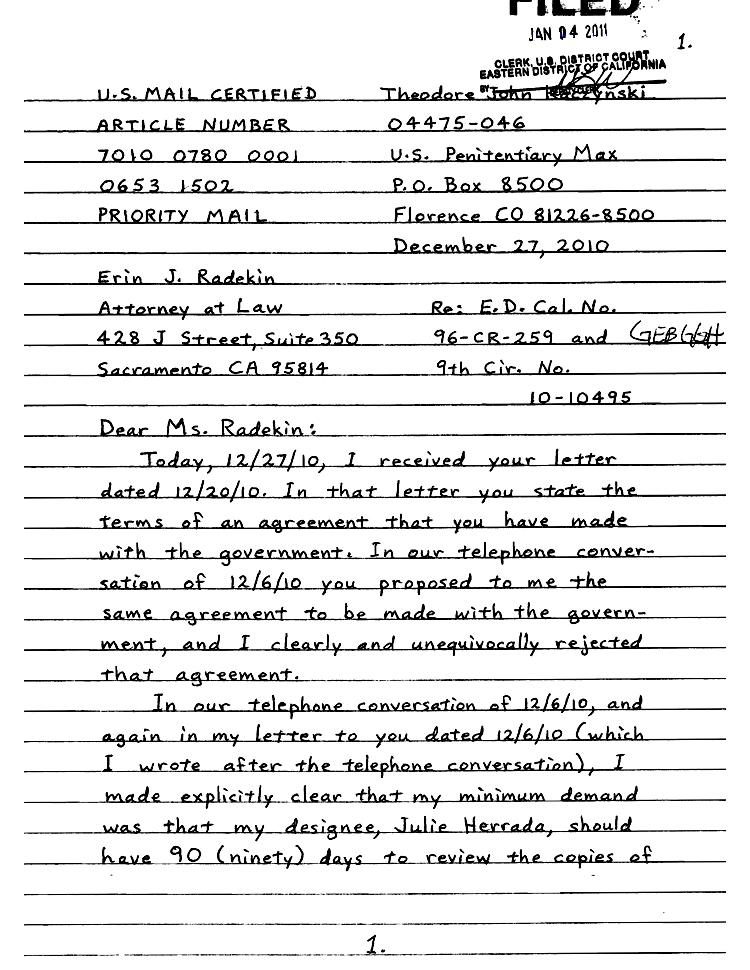 FILED
JAN 04 2011
1.
CLERK, U.S. DISTRICT COURT
EASTERN DISTRICT OF CALIFORNIA
BY
U.S. MAIL CERTIFIED Theodore John Kaczynski
ARTICLE NUMBER 04475-046
7010 0780 0001 U.S. Penitentiary Max
0653 1502 P.O. Box 8500
PRIORITY MAIL Florence CO 81226-8500
December 27, 2010
Erin J. Radekin
Attorney at Law Re: E.D. Cal. No.
428 J Street, Suite 350 96-CR-259 and GEB GGH
Sacramento CA 95814 9th Cir. No.
10-10495
Dear Ms. Radekin:
Today, 12/27/10, I received your letter
dated 12/20/10. In that letter you state the
terms of an agreement that you have made
with the government. In our telephone conver-
sation of 12/6/10 you proposed to me the
same agreement to be made with the govern-
ment, and I clearly and unequivocally rejected
that agreement.
In our telephone conversation of 12/6/10, and
again in my letter to you dated 12/6/10 (which
I wrote after the telephone conversation), I
made explicitly clear that my minimum demand
was that my designee, Julie Herrada, should
have 90 (ninety) days to review the copies of
1.